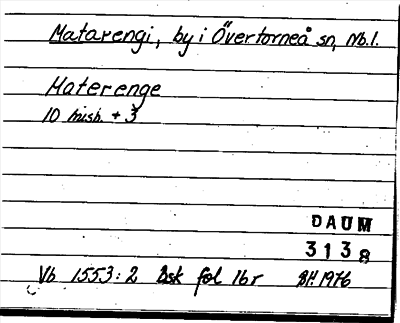 Matarengi, by i Övertorneå sn, Nb.l.
Materenge
10 mish. + 3
DAUM
3138
Vb 1553:2 Bsk fol 16r BH. 1976